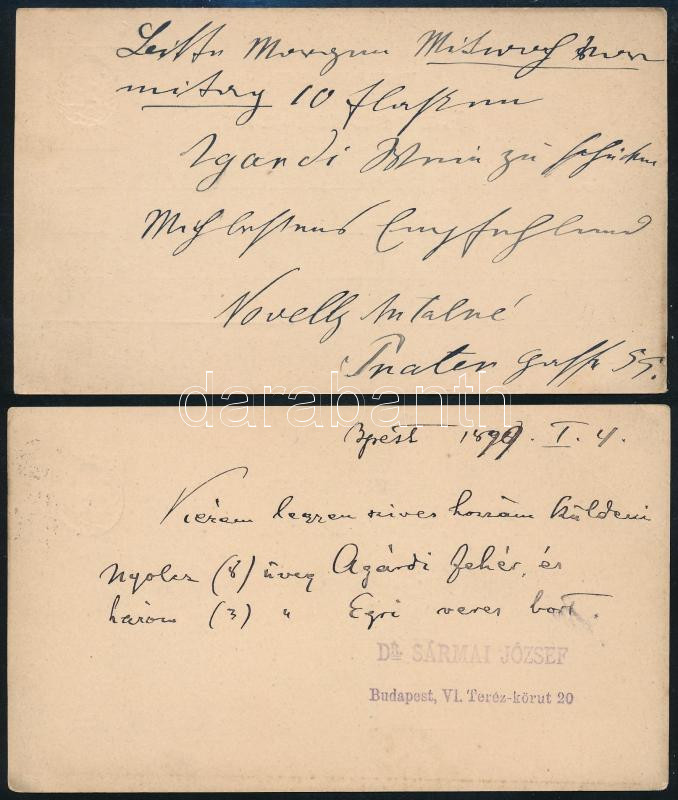 Bitte Morgen Mitwoch vor
mitag 10 flaschen
Agardi Wein zu schicken
Empfehlend
Novelly Antalné
Prater gasse 55.
darabanth
Bpest 1899. I. 4.
Kérem legyen szives hozzám küldeni
nyolcz (8) üveg Agárdi fehér, és
három (3) " Egri veres bort.
Dr. SÁRMAI JÓZSEF
Budapest, VI. Teréz-körut 20